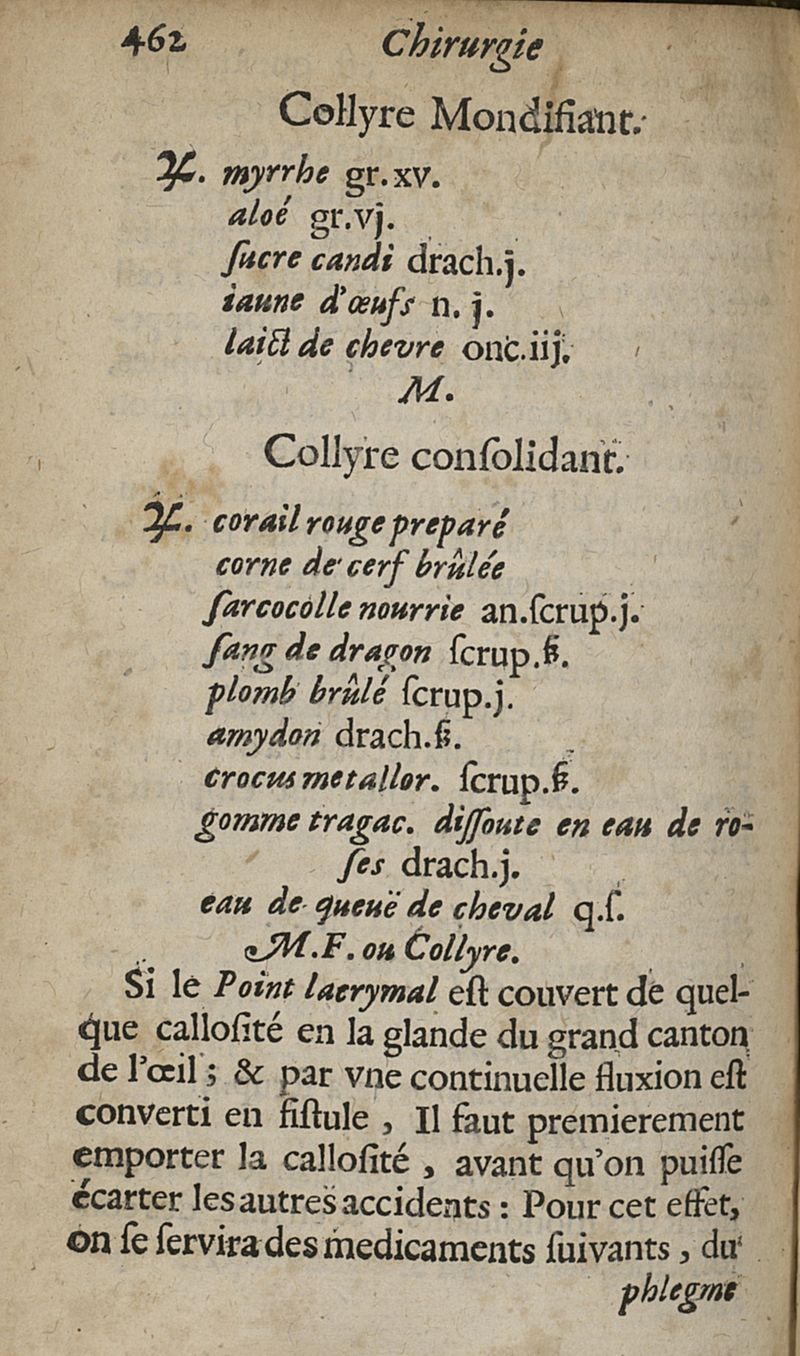 462 Chirurgie
Collyre Mondifiant.
℞. myrrhe gr.xv.
aloé gr.vj.
ſucre candi drach.j.
iaune d'œufs n. j.
laict de chevre onc.iij.
M.
Collyre conſolidant.
℞. corail rouge preparé
corne de cerf brûlée
ſarcocolle nourrie an.ſcrup.j.
ſang de dragon ſcrup.ß.
plomb brûlé ſcrup.j.
amydon drach.ß.
crocus metallor. ſcrup.ß.
gomme tragac. diſſoute en eau de ro-
ſes drach.j.
eau de queuë de cheval q.ſ.
M.F. ou Collyre.
Si le Point lacrymal eſt couvert de quel-
que calloſité en la glande du grand canton
de l'œil ; & par vne continuelle fluxion eſt
converti en fiſtule , Il faut premierement
emporter la calloſité , avant qu'on puiſſe
écarter les autres accidents : Pour cet effet,
on ſe ſervira des medicaments ſuivants , du
phlegme